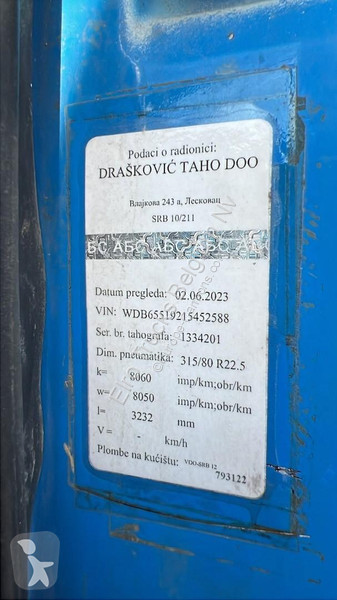 Podaci o radionici:
DRAŠKOVIĆ TAHO DOO
Влајкова 243 а, Лесковац
SRB 10/211
БС АБС АБС АБС АБС АБ
Datum pregleda: 02.06.2023
VIN: WDB65519215452588
Ser. br. tahografa: 1334201
Dim. pneumatika: 315/80 R22.5
k= 8060 imp/km;obr/km
w= 8050 imp/km;obr/km
l= 3232 mm
V = - km/h
Plombe na kućištu: VDO-SRB 12
793122